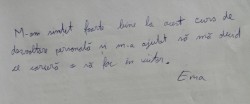 M-am simțit foarte bine la acest curs de
dezvoltare personală și m-a ajutat să mă decid
ce carieră o să fac în viitor.
Ema